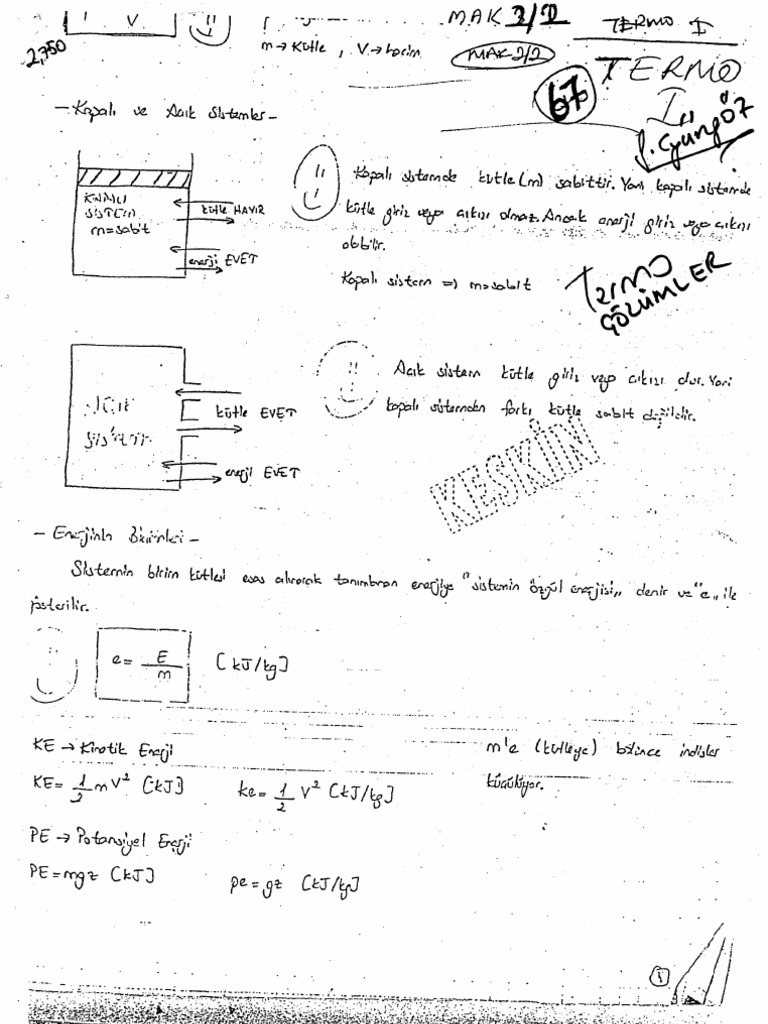 V
MAK 2/2
TERMO I
m→ Kütle , V→ hacim
MAK 2/2
2,750
TERMO
I
67
Ş. Güngöz
- Kapalı ve Açık Sistemler -
Kapalı sistemde kütle (m) sabittir. Yani kapalı sistemde
kütle giriş veya çıkışı olmaz. Ancak enerji giriş veya çıkışı
olabilir.
Kapalı sistem => m=sabit
KAPALI
SİSTEM
m=sabit
kütle HAYIR
enerji EVET
TERMO
ÇÖZÜMLER
Açık sistem kütle giriş veya çıkışı olur. Yani
kapalı sistemden farkı kütle sabit değildir.
AÇIK
SİSTEM
kütle EVET
enerji EVET
KESKİN
- Enerjinin Birimleri -
Sistemin birim kütlesi esas alınarak tanımlanan enerjiye "sistemin özgül enerjisi,, denir ve "e,, ile
gösterilir.
e = E/m [kJ/kg]
KE → Kinetik Enerji
m'e (kütleye) bölünce indisler
KE = 1/2 m V² [kJ]
ke = 1/2 V² [kJ/kg]
küçülüyor.
PE → Potansiyel Enerji
PE = mgz [kJ]
pe = gz [kJ/kg]
1